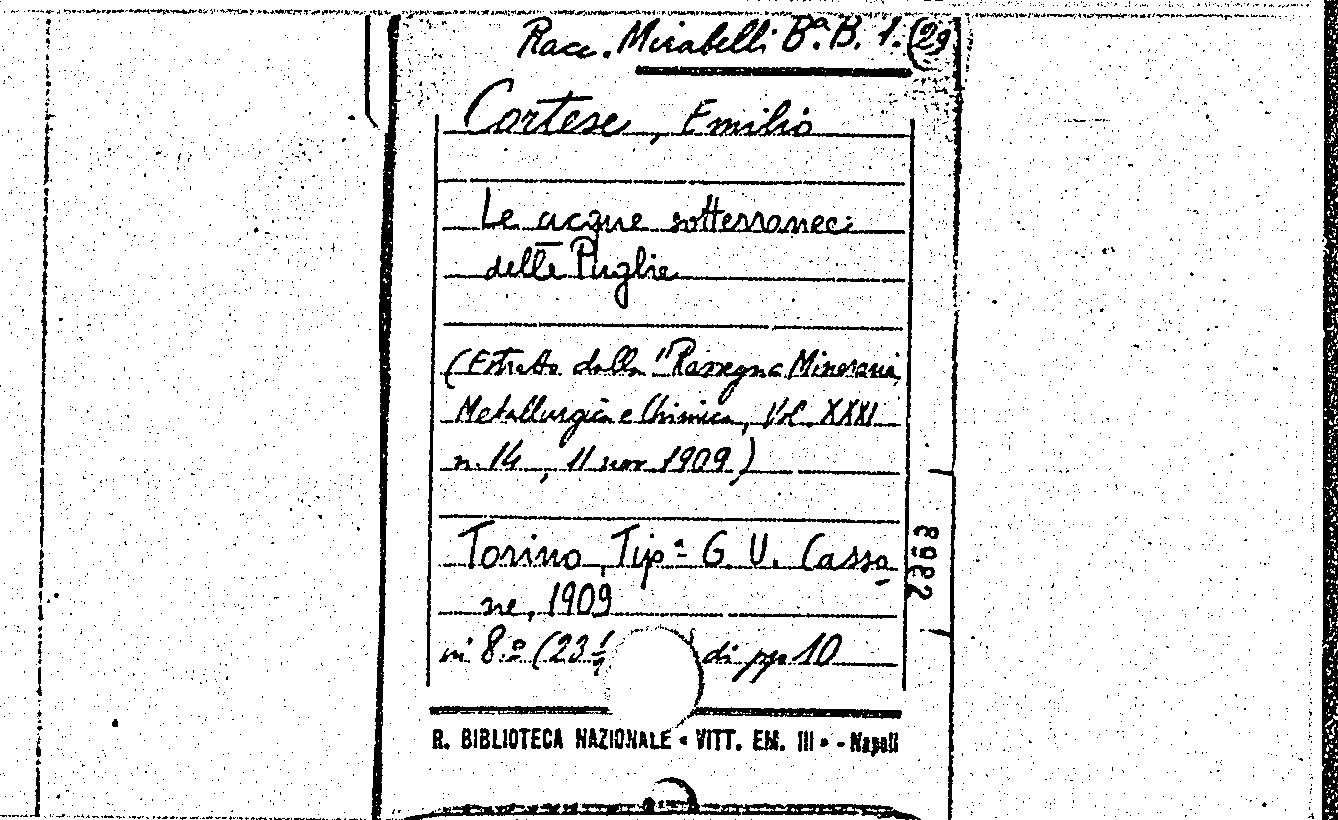 Racc. Mirabelli Bª. B. 1. (29
Cortese, Emilio
Le acque sotterranee
delle Puglie
(Estratto dalla "Rassegna Mineraria,
Metallurgica e Chimica, Vol. XXXI
n. 14, 11 nov 1909)
Torino, Tipª G. U. Casso
ne, 1909
in 8.º (23 di pp 10
R. BIBLIOTECA NAZIONALE « VITT. EM. III » - Napoli